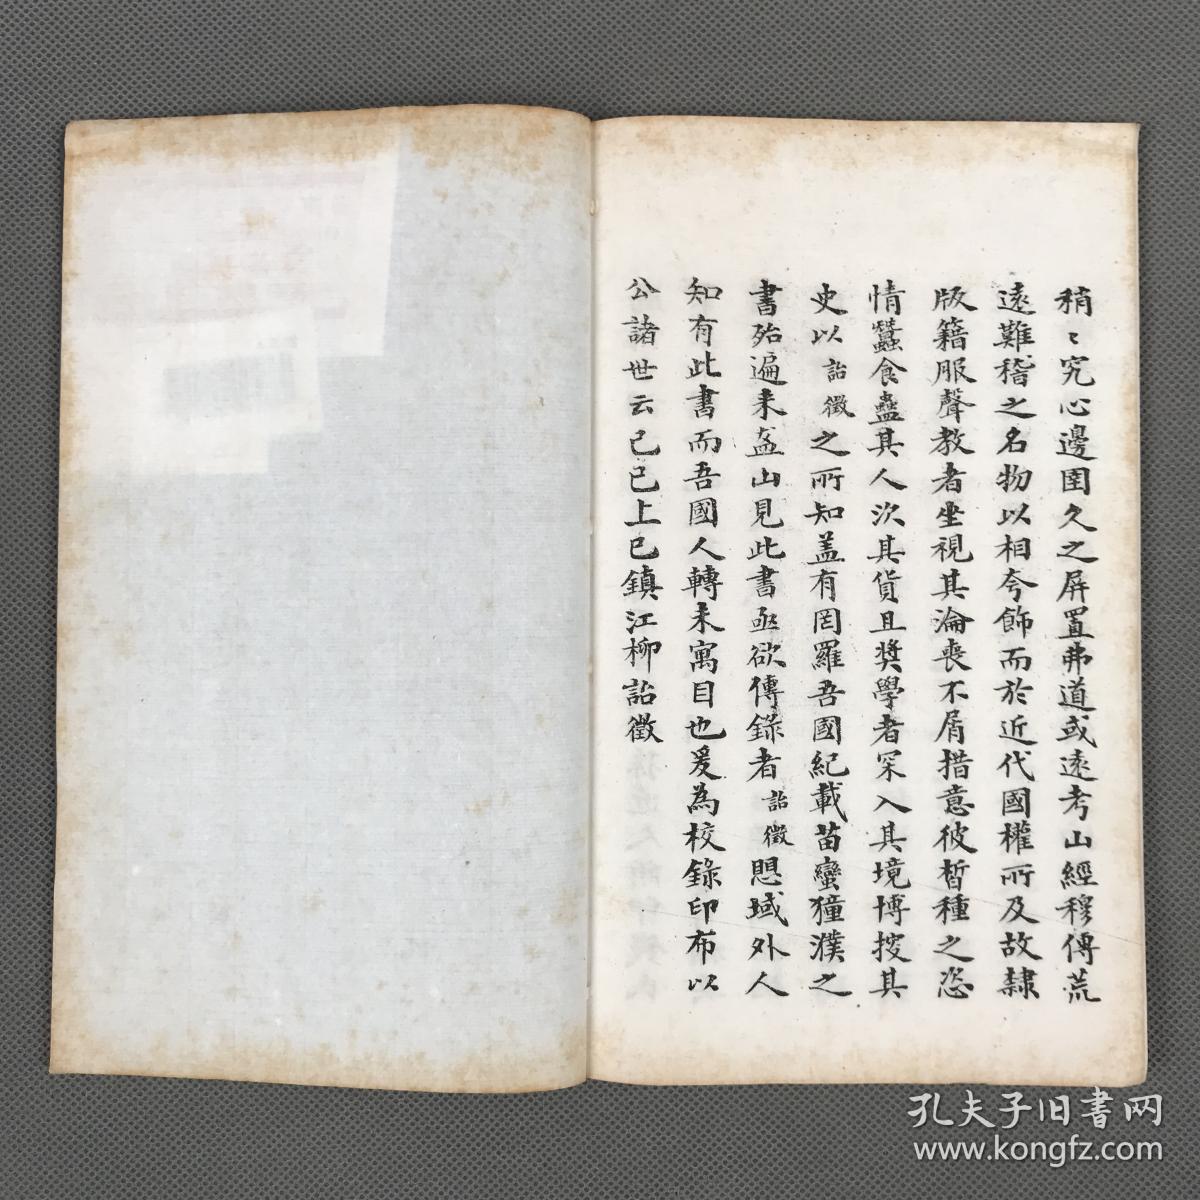 稍〻究心邊圉久之屏置弗道或遠考山經穆傳荒
遠難稽之名物以相夸飾而於近代國權所及故隸
版籍服聲教者坐視其淪喪不屑措意彼晳種之恣
情蠶食蠱其人次其貨且奬學者罙入其境博搜其
史以詒徵之所知蓋有罔羅吾國紀載苗蠻獞濮之
書殆遍未盋山見此書亟欲傳錄者詒徵愳域外人
知有此書而吾國人轉未寓目也爰為校錄印布以
公諸世云己巳上巳鎮江柳詒徵
孔夫子旧书网
www.kongfz.com